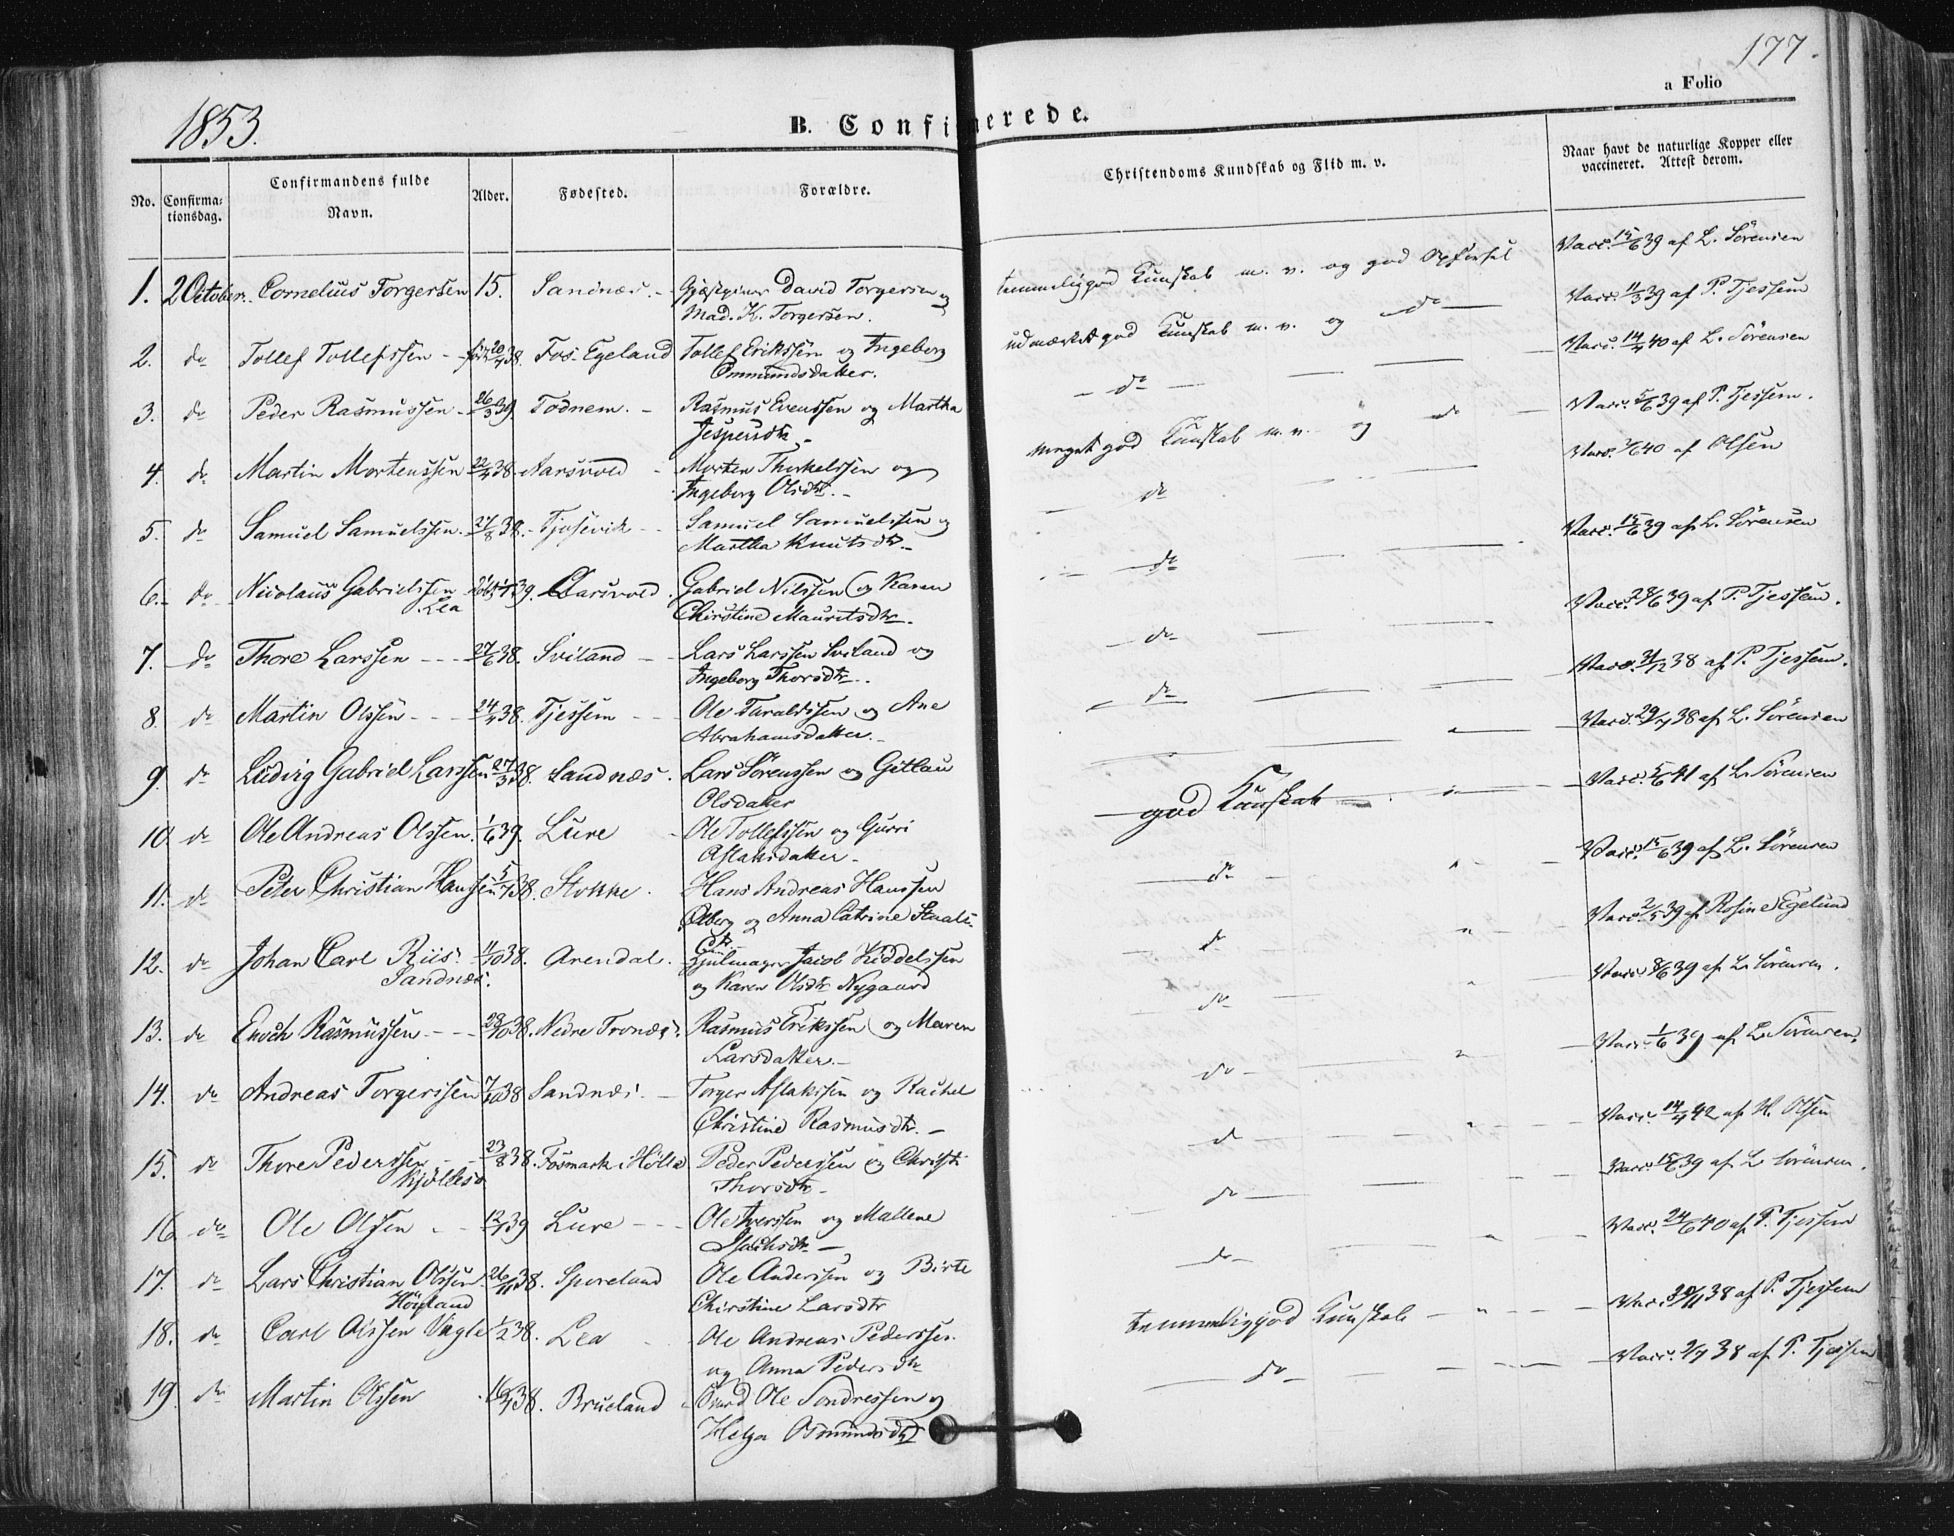 177.
a Folio
1853.
B. Confirmerede.
No.
Confirma-
tionsdag.
Confirmandens fulde
Navn.
Alder.
Fødested.
Forældre.
Christendoms Kundskab og Flid m. v.
Naar havt de naturlige Kopper eller
vaccineret. Attest derom.
1. 2 October. Cornelius Torgersen 15. Sandnæs. Gjæstgiver David Torgersen og
Mad. K. Torgersen.
temmelig god Kunskab m. v. og god Opførsel
Vacc. 15/6 39 af L. Sörensen
2. do Tollef Tollefssen 38. Fos. Egeland Tollef Erikssen og Ingeborg
Ommundsdatter.
udmærket god Kunskab m. v. og do
Vacc. 11/3 39 af P. Tjessem
3. do Peder Rasmussen 26/3 39 Todnem. Rasmus Evenssen og Martha
Jespersdtr
do
Vacc. 14/4 40 af L. Sörensen
4. do Martin Mortenssen 22/4 38 Aarsvold Morten Thorkelssen og
Ingeborg Olsdtr.
meget god Kunskab m. v. og do
Vacc. 5/6 39 af P. Tjessem.
5. do Samuel Samuelssen. 27/8 38. Tjosevik Samuel Samuelssen og
Martha Knutsdtr.
do
Vacc. 40 af Olsen
6. do Nicolaus Gabrielssen
Lea
39. Aarsvold. Gabriel Nilssen og Karen
Chirstine Mauritsdtr.
do
Vacc. 15/6 39 af L. Sörensen
7. do Thore Larssen 27/6 38. Sviland Lars Larssen Sviland og
Ingeborg Thorsdtr.
do
Vacc. 28/6 39 af P. Tjessem.
8 do Martin Olssen 24/4 38. Tjessem Ole Taraldssen og Ane
Abrahamsdatter.
do
Vacc. 31/12 38 af P. Tjessem.
9. do Ludvig Gabriel Larssen 27/3 38. Sandnæs. Lars Sörenssen og Gitlau
Olsdatter
Vacc. 29/7 38 af L. Sörensen
10. do Ole Andreas Olssen. 1/6 39. Lure Ole Tollefssen og Gurri
Aslaksdatter
god Kunskab
Vacc. 5/6 41 af L. Sörensen
11. do Peter Christian Hanssen 38. Stokke. Hans Andreas Hanssen
og Anna Catrine
do
Vacc. 15/6 39 af L. Sörensen
12. do Johan Carl Riis.
Sandnæs.
11/10 38. Arendal. Hjulmager Jacob Kiddelssen
og Karen Olsdtr Nygaard
do
Vacc. 2/5 39 af Rosine Egelund
13. do Enoch Rasmussen 23/10 38. Nedre Tronæs. Rasmus Erikssen og Maren
Larsdatter
do
Vacc. 8/6 39 af L. Sörensen.
14. do Andreas Torgerssen 7/10 38 Sandnæs. Torger Aslakssen og Rachel
Christine Rasmusdtr.
do
Vacc. 1/6 39 af L. Sörensen.
15. do Thore Pederssen
23/8 38. Fosmark i Hölla Peder Pederssen og Christi
Thorsdtr
do
Vacc. 14/4 42 af H. Olsen
16 do Ole Olssen 39 Lure Ole Iverssen og Mallene
Isacksdtr
do
Vacc. 15/6 39 af L. Sörensen.
17. do Lars Christian Olssen
Höyland
26/11 38. Sporeland Ole Anderssen og Birte
Chirstine Larsdtr
do
Vacc. 24/6 40 af P. Tjessem
18. do Carl Olssen Vagle 1/2 38. Lea Ole Andreas Pederssen
og Anna Pedersdtr
temmelig god Kunskab
Vacc. 38 af P. Tjessem
19. do Martin Olssen 38. Brueland Ole Sondressen og
Helga Osmundsdtr
do
Vacc. 38 af P. Tjessem